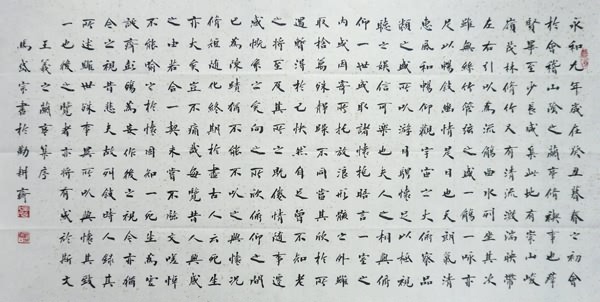 永和九年歲在癸丑暮春之初會
於會稽山陰之蘭亭修禊事也群
賢畢至少長咸集此地有崇山峻
嶺茂林修竹又有清流激湍映帶
左右引以為流觴曲水列坐其次
雖無絲竹管弦之盛一觴一詠亦
足以暢敘幽情是日也天朗氣清
惠風和暢仰觀宇宙之大俯察品
類之盛所以游目騁懷足以極視
聽之娛信可樂也夫人之相與俯
仰一世或取諸懷抱晤言一室之
內或因寄所託放浪形骸之外雖
取捨萬殊靜躁不同當其欣於所
遇暫得於己快然自足曾不知老
之將至及其所之既倦情隨事遷
感慨係之矣向之所欣俯仰之間
已為陳跡猶不能不以之興懷況
修短隨化終期於盡古人云死生
亦大矣豈不痛哉每覽昔人興感
之由若合一契未嘗不臨文嗟悼
不能喻之於懷固知一死生為虛
誕齊彭殤為妄作後之視今亦猶
今之視昔悲夫故列敘時人錄其
所述雖世殊事異所以興懷其致
一也後之覽者亦將有感於斯文
王羲之蘭亭集序
馬成宗書於勤耕齋